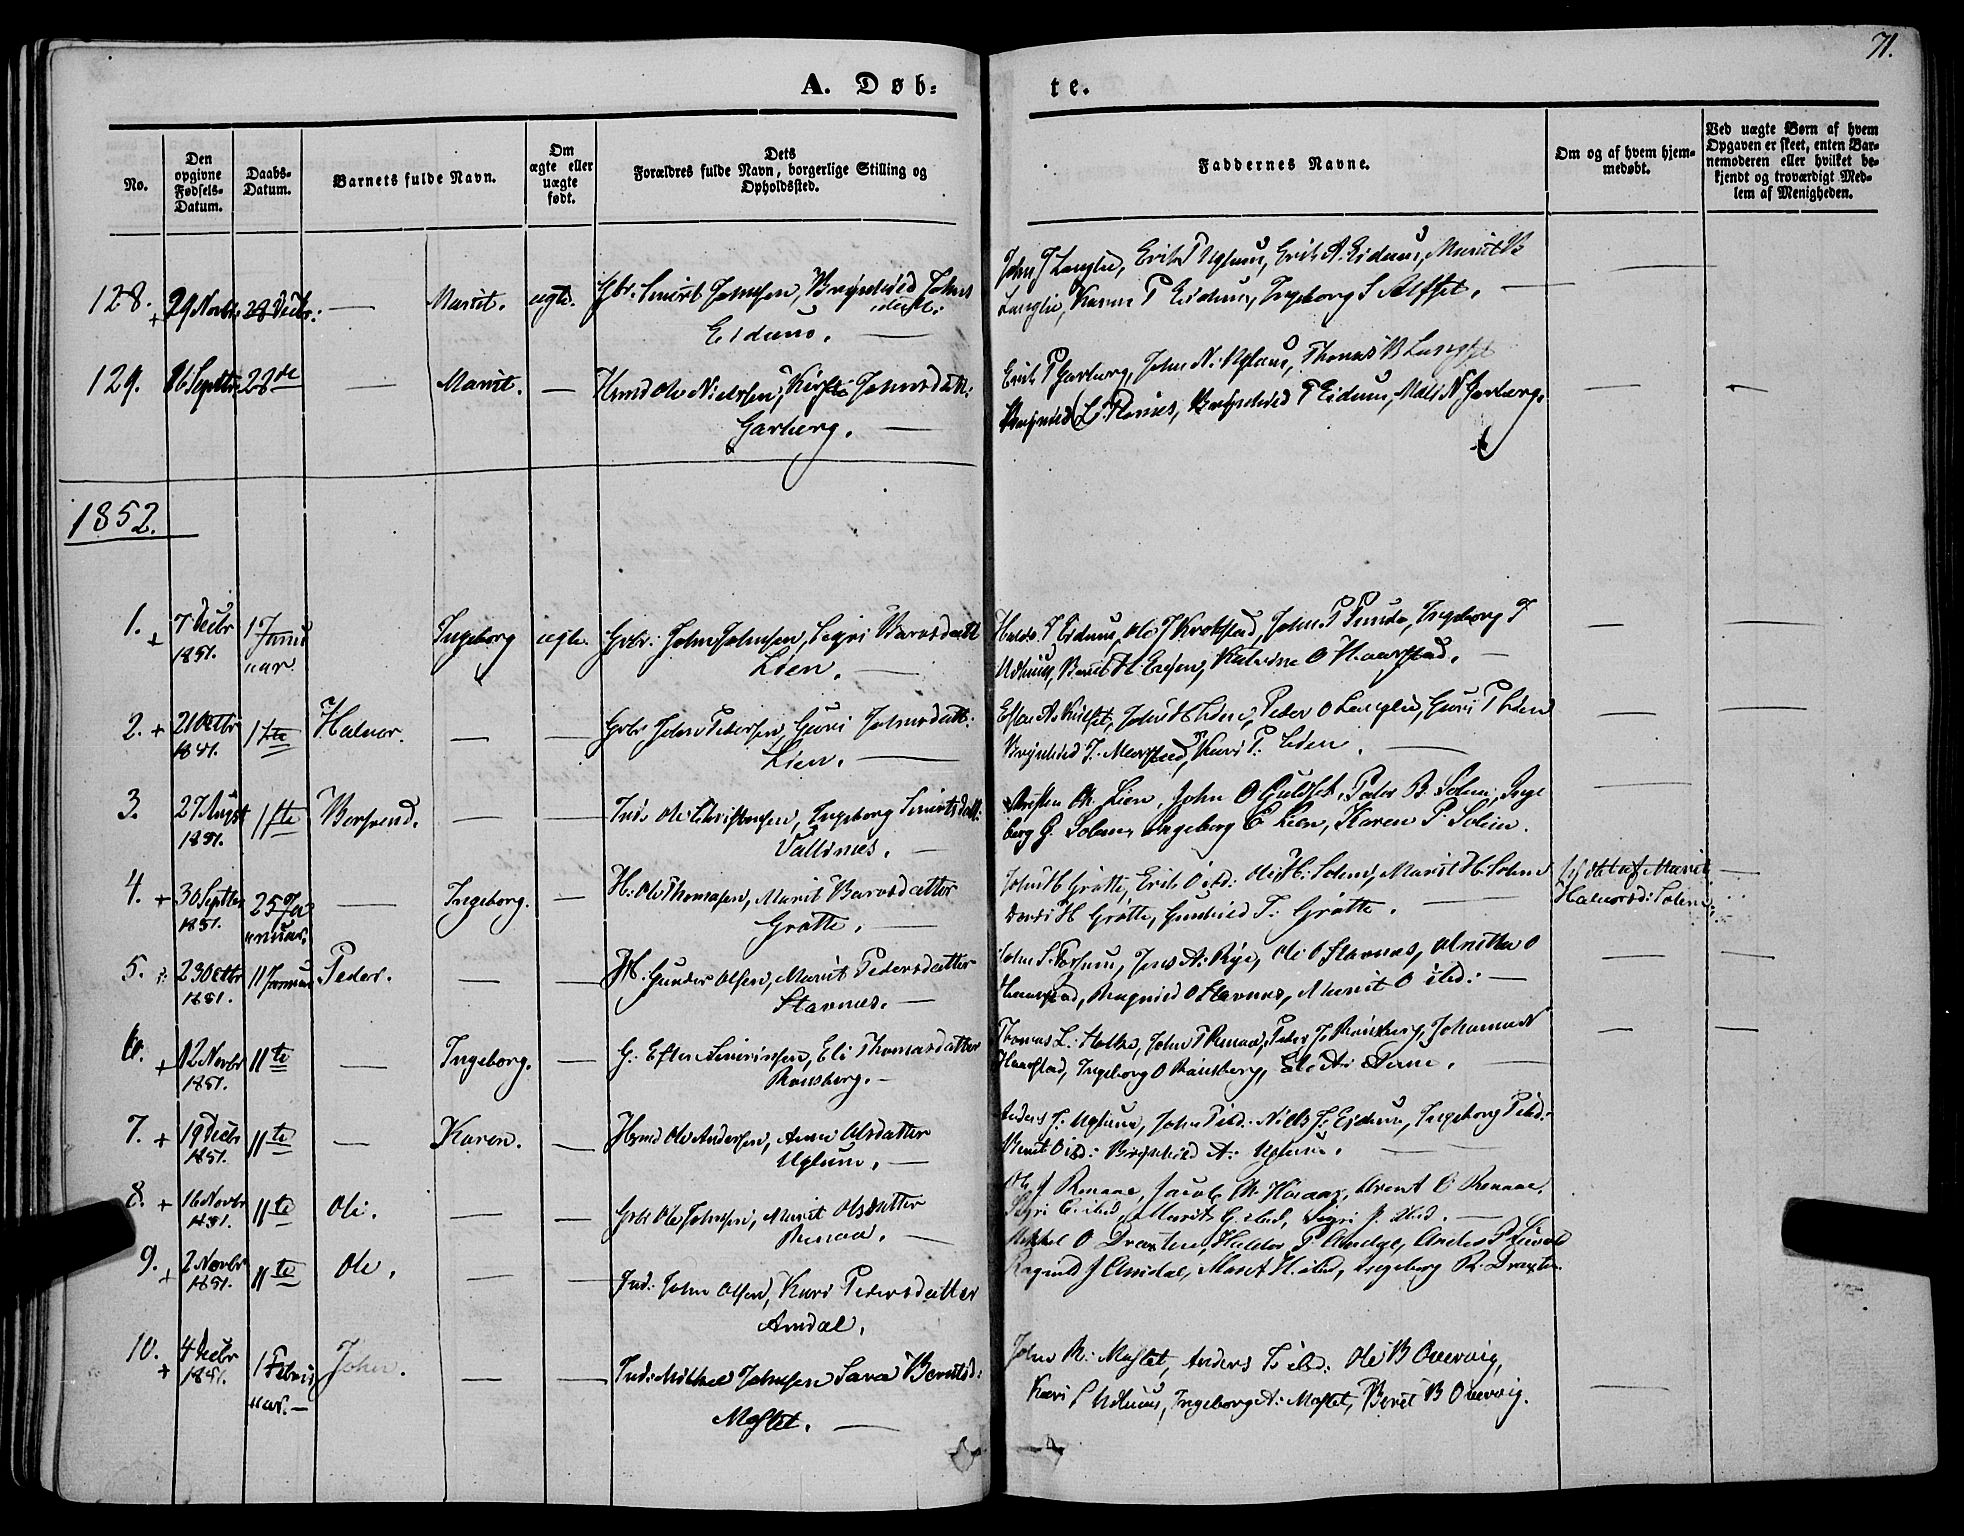 71.
A. Døb: te.
No.
Den opgivne Fødsels-Datum.
Daabs-Datum.
Barnets fulde Navn.
Om ægte eller uægte født.
Dets Forældres fulde Navn, borgerlige Stilling og Opholdssted.
Faddernes Navne.
Om og af hvem hjemmedøbt.
Ved uægte Børn af hvem Opgaven er skeet, enten Barnemoderen eller hvilket bekjendt og troværdigt Medlem af Menigheden.
128. + 29 Novbr. 28 Decbr: — Marit. ægte. Gbr. Sivert Johnsen, Brynhild Johnsdatt:
Eidum. —
John J Langlie, Erik P Uglum, Erik A. Eidum, Marit
Langlie, Karen P Eidum, Ingeborg S Alfset. —
129. 16 Septbr 28de — Marit. — Hmd Ole Nielssen, Kirsti Johnsdatt:
Garberg. —
Erik P Garberg, John N. Uglum, Thomas B
Brynhild L. Renaes, Brynhild P Eidum, Malli N Garberg.
1852.
1. + 7 Decbr 1851. 1 Januar. Ingeborg ægte. Grbr: John Johnsen, Sigri Barosdatt
Lien. —
Haldo. J Eidum, Ole J Krokstad, John P Punde, Ingeborg J
Berit H. Katrine O Haarstad. —
2. + 21 Octbr 1851. 1ste Halvor. — — Grbr John Pedersen, Guri Johnsdatt:
Lien. —
John H Lien, Peder O Langlie, Guri P Lien
Brynhild J. Marstad, Kari P. Lien. —
3. 27 August 1851. 1ste Bersvend. — — Inds. Ole Christensen, Ingeborg Sivertsdatt:
Vallines. —
Cresten Ch. Lien, John O Guldset, Peder B. Solem, Inge
berg G. Solem, Ingeborg C Lien, Karen P. Solem.
4. + 30 Septbr 1851. 25 Januar. — Ingeborg. — H: Ole Thomasen, Marit Barosdatter
Grøtte. —
John H Grøtte, Erik O ibd: Ole H: Solem, Marit H. Solem
H Grøtte, Gunhild T: Grøtte. —
af Marit
Halvorsd: Solem.
5. 23 Octbr 1851. 11 Januar Peder. — — H. Gunder Olsen, Marit Pedersdatter
Stavnes. —
John S. Forsum, Jens A. Rye, Ole O Stavnes, O
Haarstad, Ragnild O Stavnes, Marit O ibd: —
6. + 12 Novbr 1851. 11te — Ingeborg. — G: Esten Siverinsen, Eli Thomasdatter
Ronsberg. —
Thomas L. John P Renaa, Peder J. Ronsberg, Johanna N
Haarstad, Ingeborg O Ronsberg, Eli A: —
7. + 19 Decbr 1851. 11te — Karen. — Hmd Ole Andersen, Anne Olsdatter
Uglum. —
Anders J. Uglum, John P ibd: Niels J. Eidum, Ingeborg P ibd:
Berit O ibd: Brynhild A: Uglum. —
8. + 16 Novbr 1851. 11te Ole. — — Grbr Ole Johnsen, Marit Olsdatter
Renaa. —
Ole J Renaae, Jacob Ch. Horaas, Arent O Renaae,
Sigri E. ibd, Marit G. ibd, Sigri J. ibd. —
9. + 2 Novbr 1851. 11te Ole. — — Ind: John Olsen, Kari Pedersdatter
Amdal.
Mikkel O Draxten, Haldor P Amdal, Anders P
Ragnild J Amdal, Marit H. ibd, Ingeborg R. Draxten.
10. + 4 Decbr 1851. 1 Februar. — John. — — Ind: Mikkel Johnsen Sara Berntsd:
Mostet. —
John R: Mostet, Anders T ibd: Ole B Overvig,
Kari Ingeborg A: Mostet, Beret B Overvig.